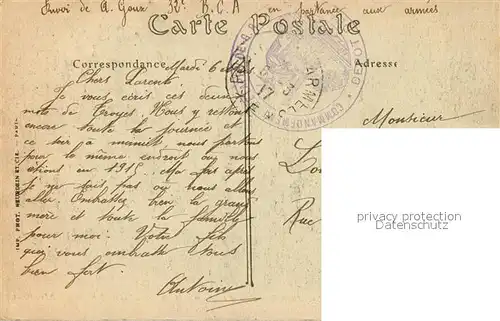 Envoi de A. Goux 32e B.C.A en partance aux armées
Carte Postale
Correspondance
Adresse
Mardi 6
Chers Parents
Je vous écris ces deux
mots de Troyes. Nous y restons
encore toute la journée et
ce soir à minuit nous partons
pour le même endroit ou nous
étions en 1915. Ma fois après
je ne sais pas ou nous allons
aller. Embrassez bien la grand
mère et toute la famille
pour moi. Votre fils
qui vous embrasse tous
bien fort.
Antoine
Monsieur
Rue
COMMANDEMENT
DEPOT
IMP. PHOT. NEURDEIN ET CIE. - PARIS
persönliche Daten
personal data